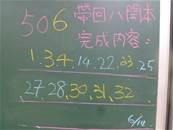 506 帶回八開本
完成內容:
1.34.14.22.23.25
27.28.30.31.32
6/12